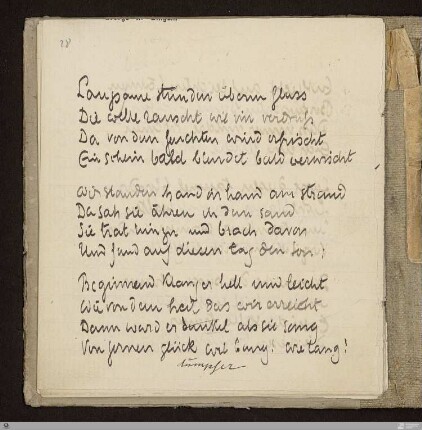 28
Langsame stunden überm fluss
Die welle rauscht wie im verdruss
Da von dem feuchten wind erfrischt
Ein schein bald blendet bald verwischt
Wir standen hand in hand am strand
Da sah sie ähren in dem sand
Sie trat hinzu und brach davon
Und fand auf diesen tag den ton:
Beginnend klang er hell und leicht
Wie von dem das wir erreicht
Dann ward er dunkel als sie sang
Vom fernen glück wie bang! wie lang!
dumpfer